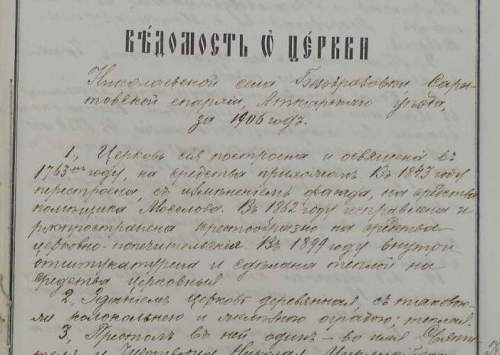 ВѢДОМОСТЬ Ѡ ЦЕРКВИ
Николаевской села Саратовской епархіи, Аткарскаго уѣзда,
за 1906 годъ.
1, Церковь сія построена и освящена въ
1763мъ году, на средства прихожанъ. Въ 1843 году
перестроена, съ измѣненіемъ фасада, на средства
помѣщика Мосолова. Въ 1862 году исправлена и
распространена крестообразно на средства
церковно-попечительскія. Въ 1899 году внутри
отштукатурена и сдѣлана теплой на
средства церковныя.
2, Зданіемъ церковь деревянная, съ таковою
же колокольнею и оградою; теплая.
3, Престолъ въ ней одинъ - во имя Святи
теля и Николая